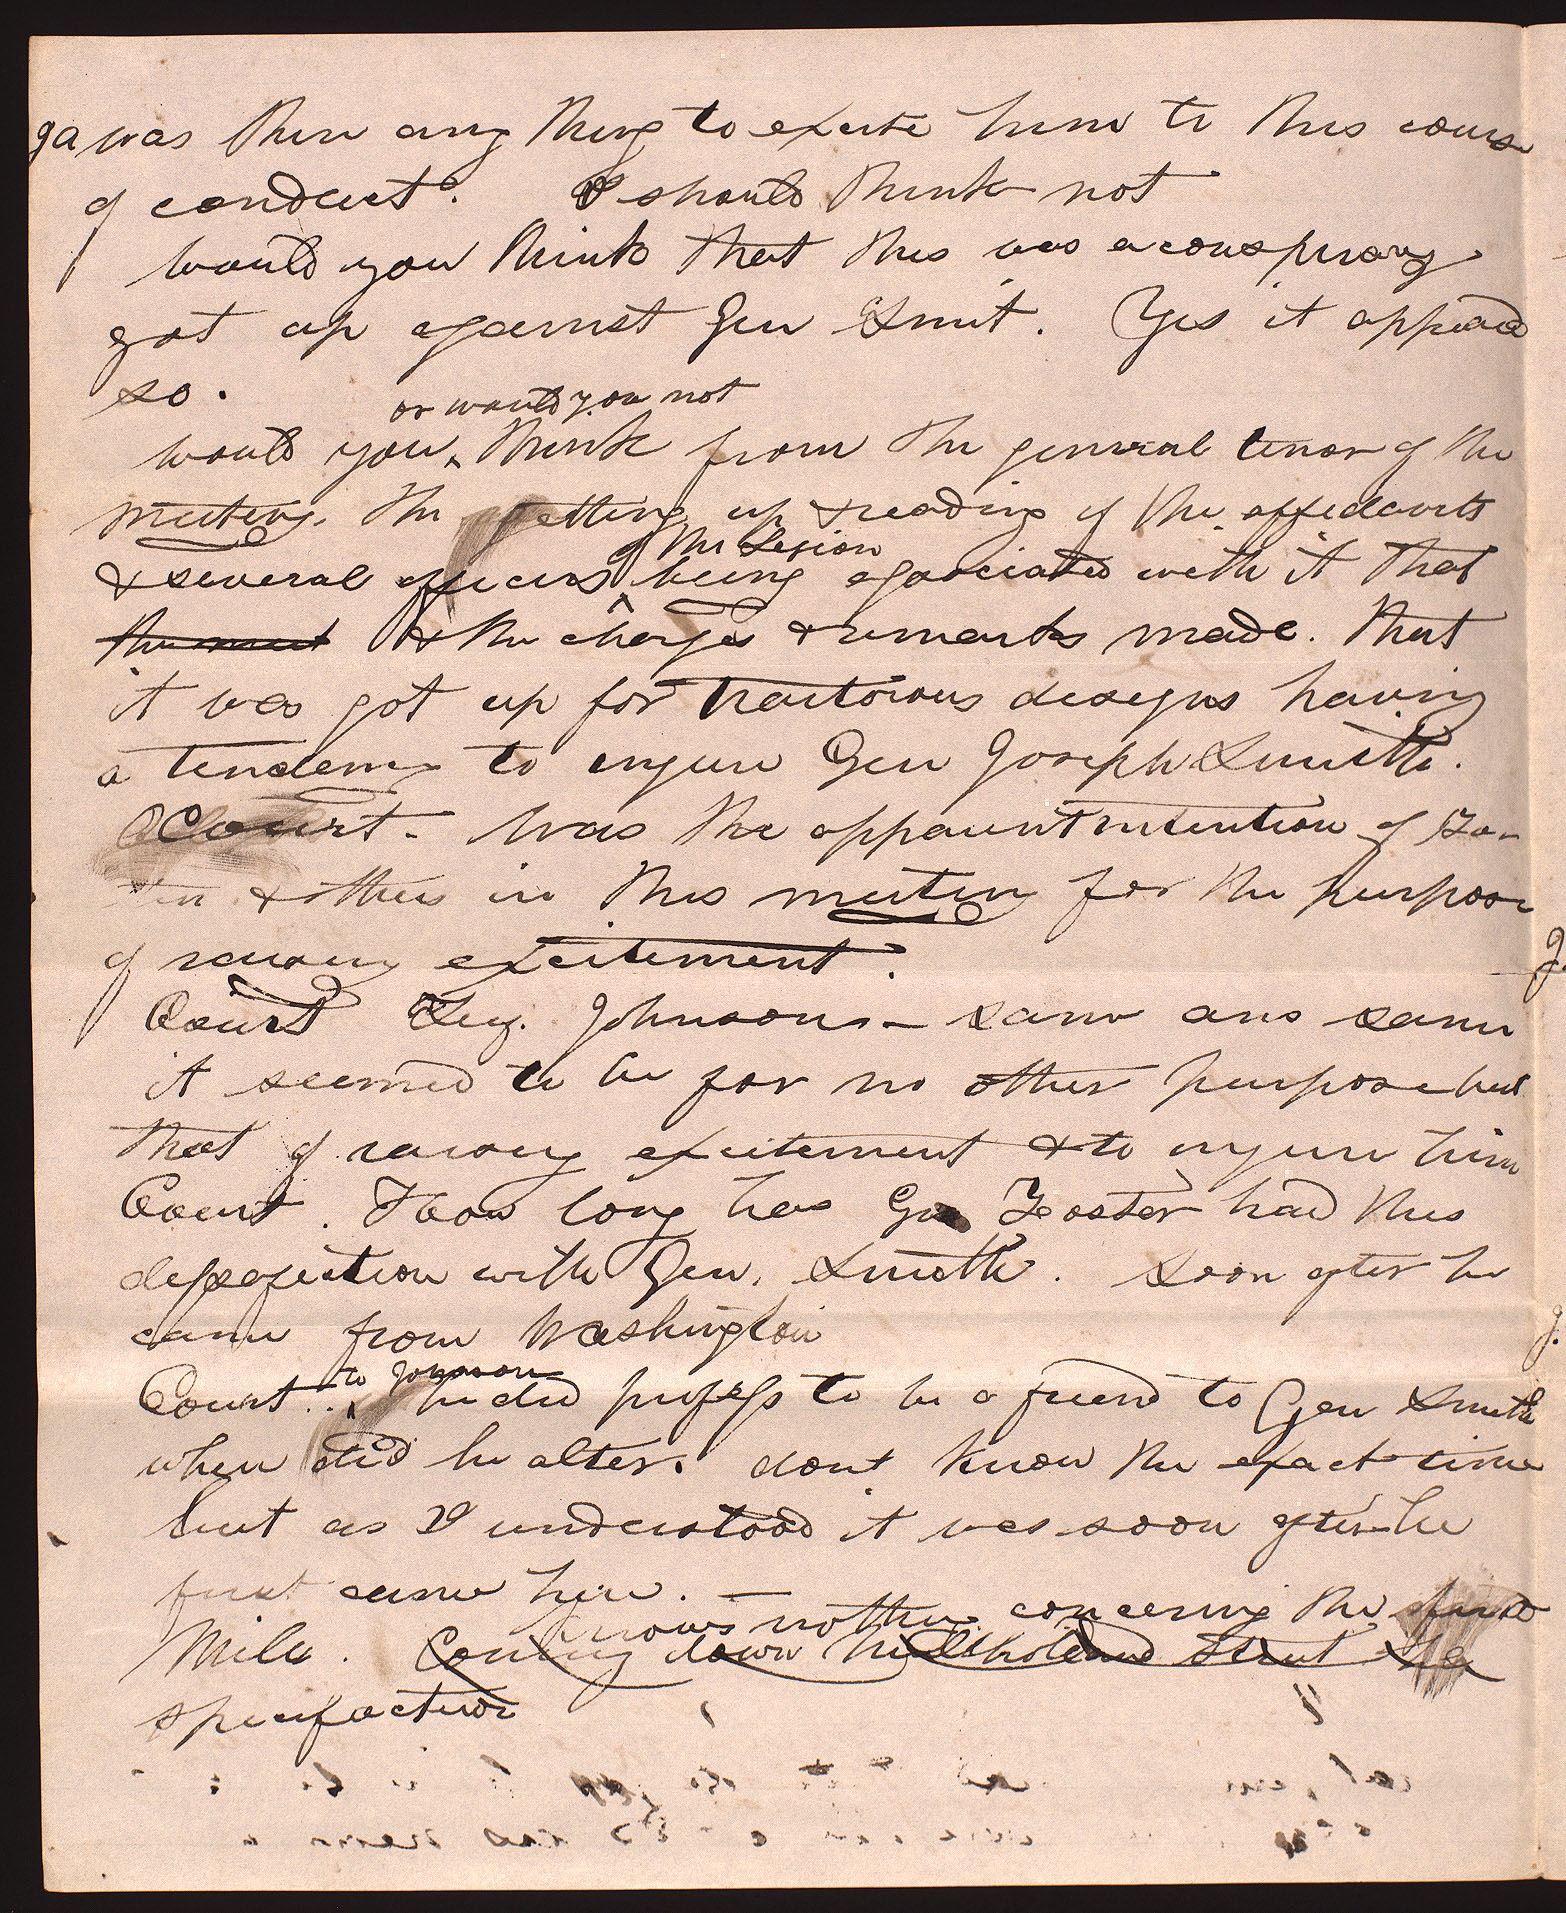 ga was there any thing to excite him to this course
of conduct? I should think not
would you think that this was a conspiracy
got up against Gen Smit. Yes it appeard
so.
or would you not
would you ^ think from the general tenor of the
meeting. the getting up & reading of the affedavits
of the Legion
& several officers ^ being associated with it that
the meet & the charges & remarks made. that
it was got up for traitorous designs having
a tendency to injure Gen Joseph Smith.
Court. was the apparent intention of Fos-
ter & others in this meeting for the purpose
of raising excitement.
Court Leg. Johnson. same ans same
it seemed to be for no other purpose but
that of raising excitement & to injure him
Court. How long has Gen Foster had this
dispossition with Gen. Smith. soon after he
came from Washington
to Johnson
Court. ^ he did profess to be a friend to Gen Smith
when did he alter. dont know the exact time
but as I understood it was soon after he
first came here.
knows nothing concerning the first
Mile. Coming down Mulholland Street
specifaction